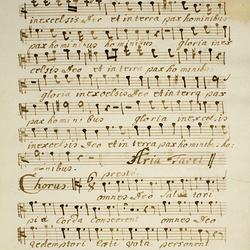 inexcelsis Deo et in terra pax hominibus
pax hominibus hominibus gloria inex
celsis Deo et in terra pax hominibus
gloria inexcelsis Deo et in terra pax
hominibus gloria inexcelsis
inexcelsis Deo et in terra pax hominibus, ho:
monibus. Aria Tacet
Chorus presto
omnes Deo Salvatori
pia Corda consecrent omnes Deo
Redemptori Laeti vota personent